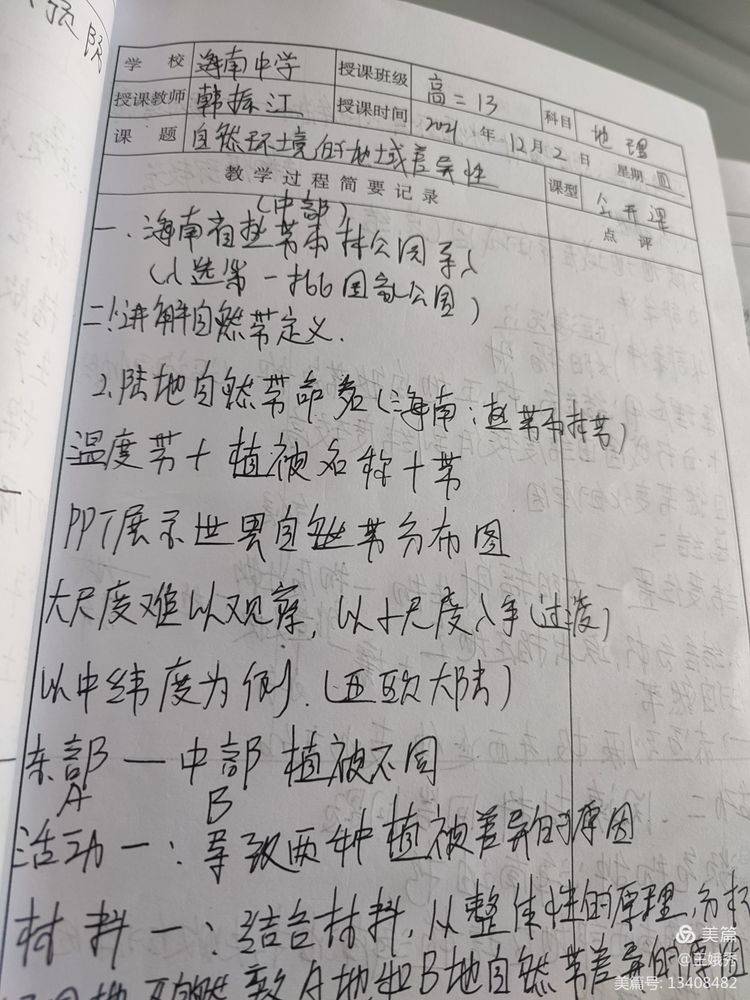 学校 海南中学 授课班级 高二13 科目 地理
授课教师 韩振江 授课时间 2021年12月2日 星期四
课题 自然环境的地域差异性 课型 公开课
教学过程简要记录 点评
(中部)
一.海南省热带雨林公园导入
(入选第一批国家公园)
二.1.讲解自然带定义.
2.陆地自然带命名(海南:热带雨林带)
温度带+植被名称+带
PPT展示世界自然带分布图
大尺度难以观察,以小尺度入手(过渡)
以中纬度为例.(亚欧大陆)
东部—中部植被不同
A B
活动一:导致两种植被差异的原因
材料一:结合材料,从整体性的原理,分析
A地和B地自然带差异的原因
美篇
@王娥秀
美篇号:13408482